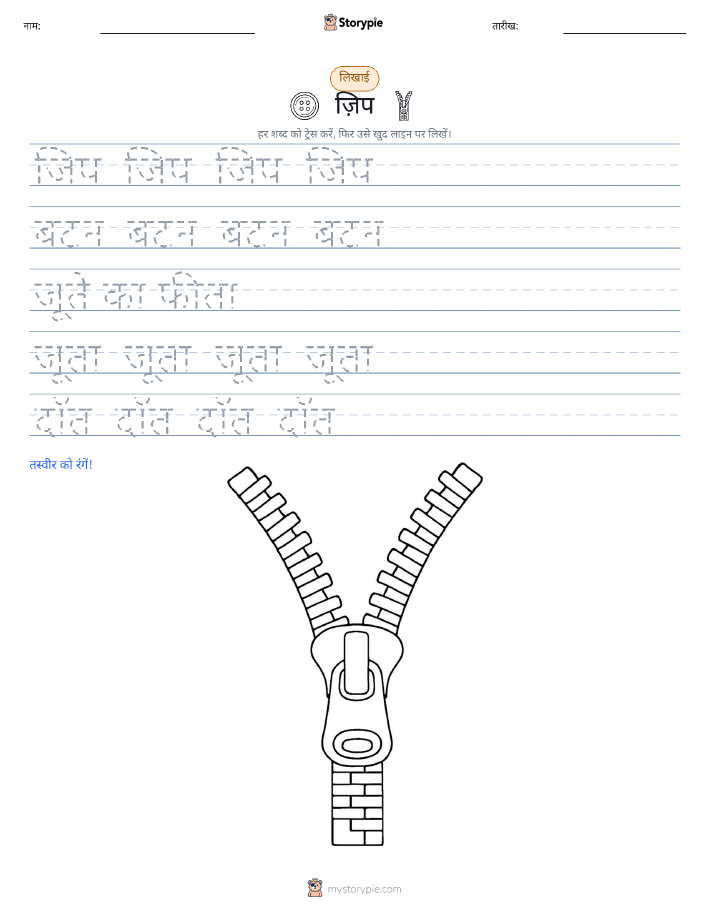 नाम:
Storypie
तारीख:
लिखाई
ज़िप
हर शब्द को ट्रेस करें, फिर उसे खुद लाइन पर लिखें।
ज़िप ज़िप ज़िप ज़िप
बटन बटन बटन बटन
जूते का फीता
जूता जूता जूता जूता
दाँत दाँत दाँत दाँत
तस्वीर को रंगें!
mystorypie.com